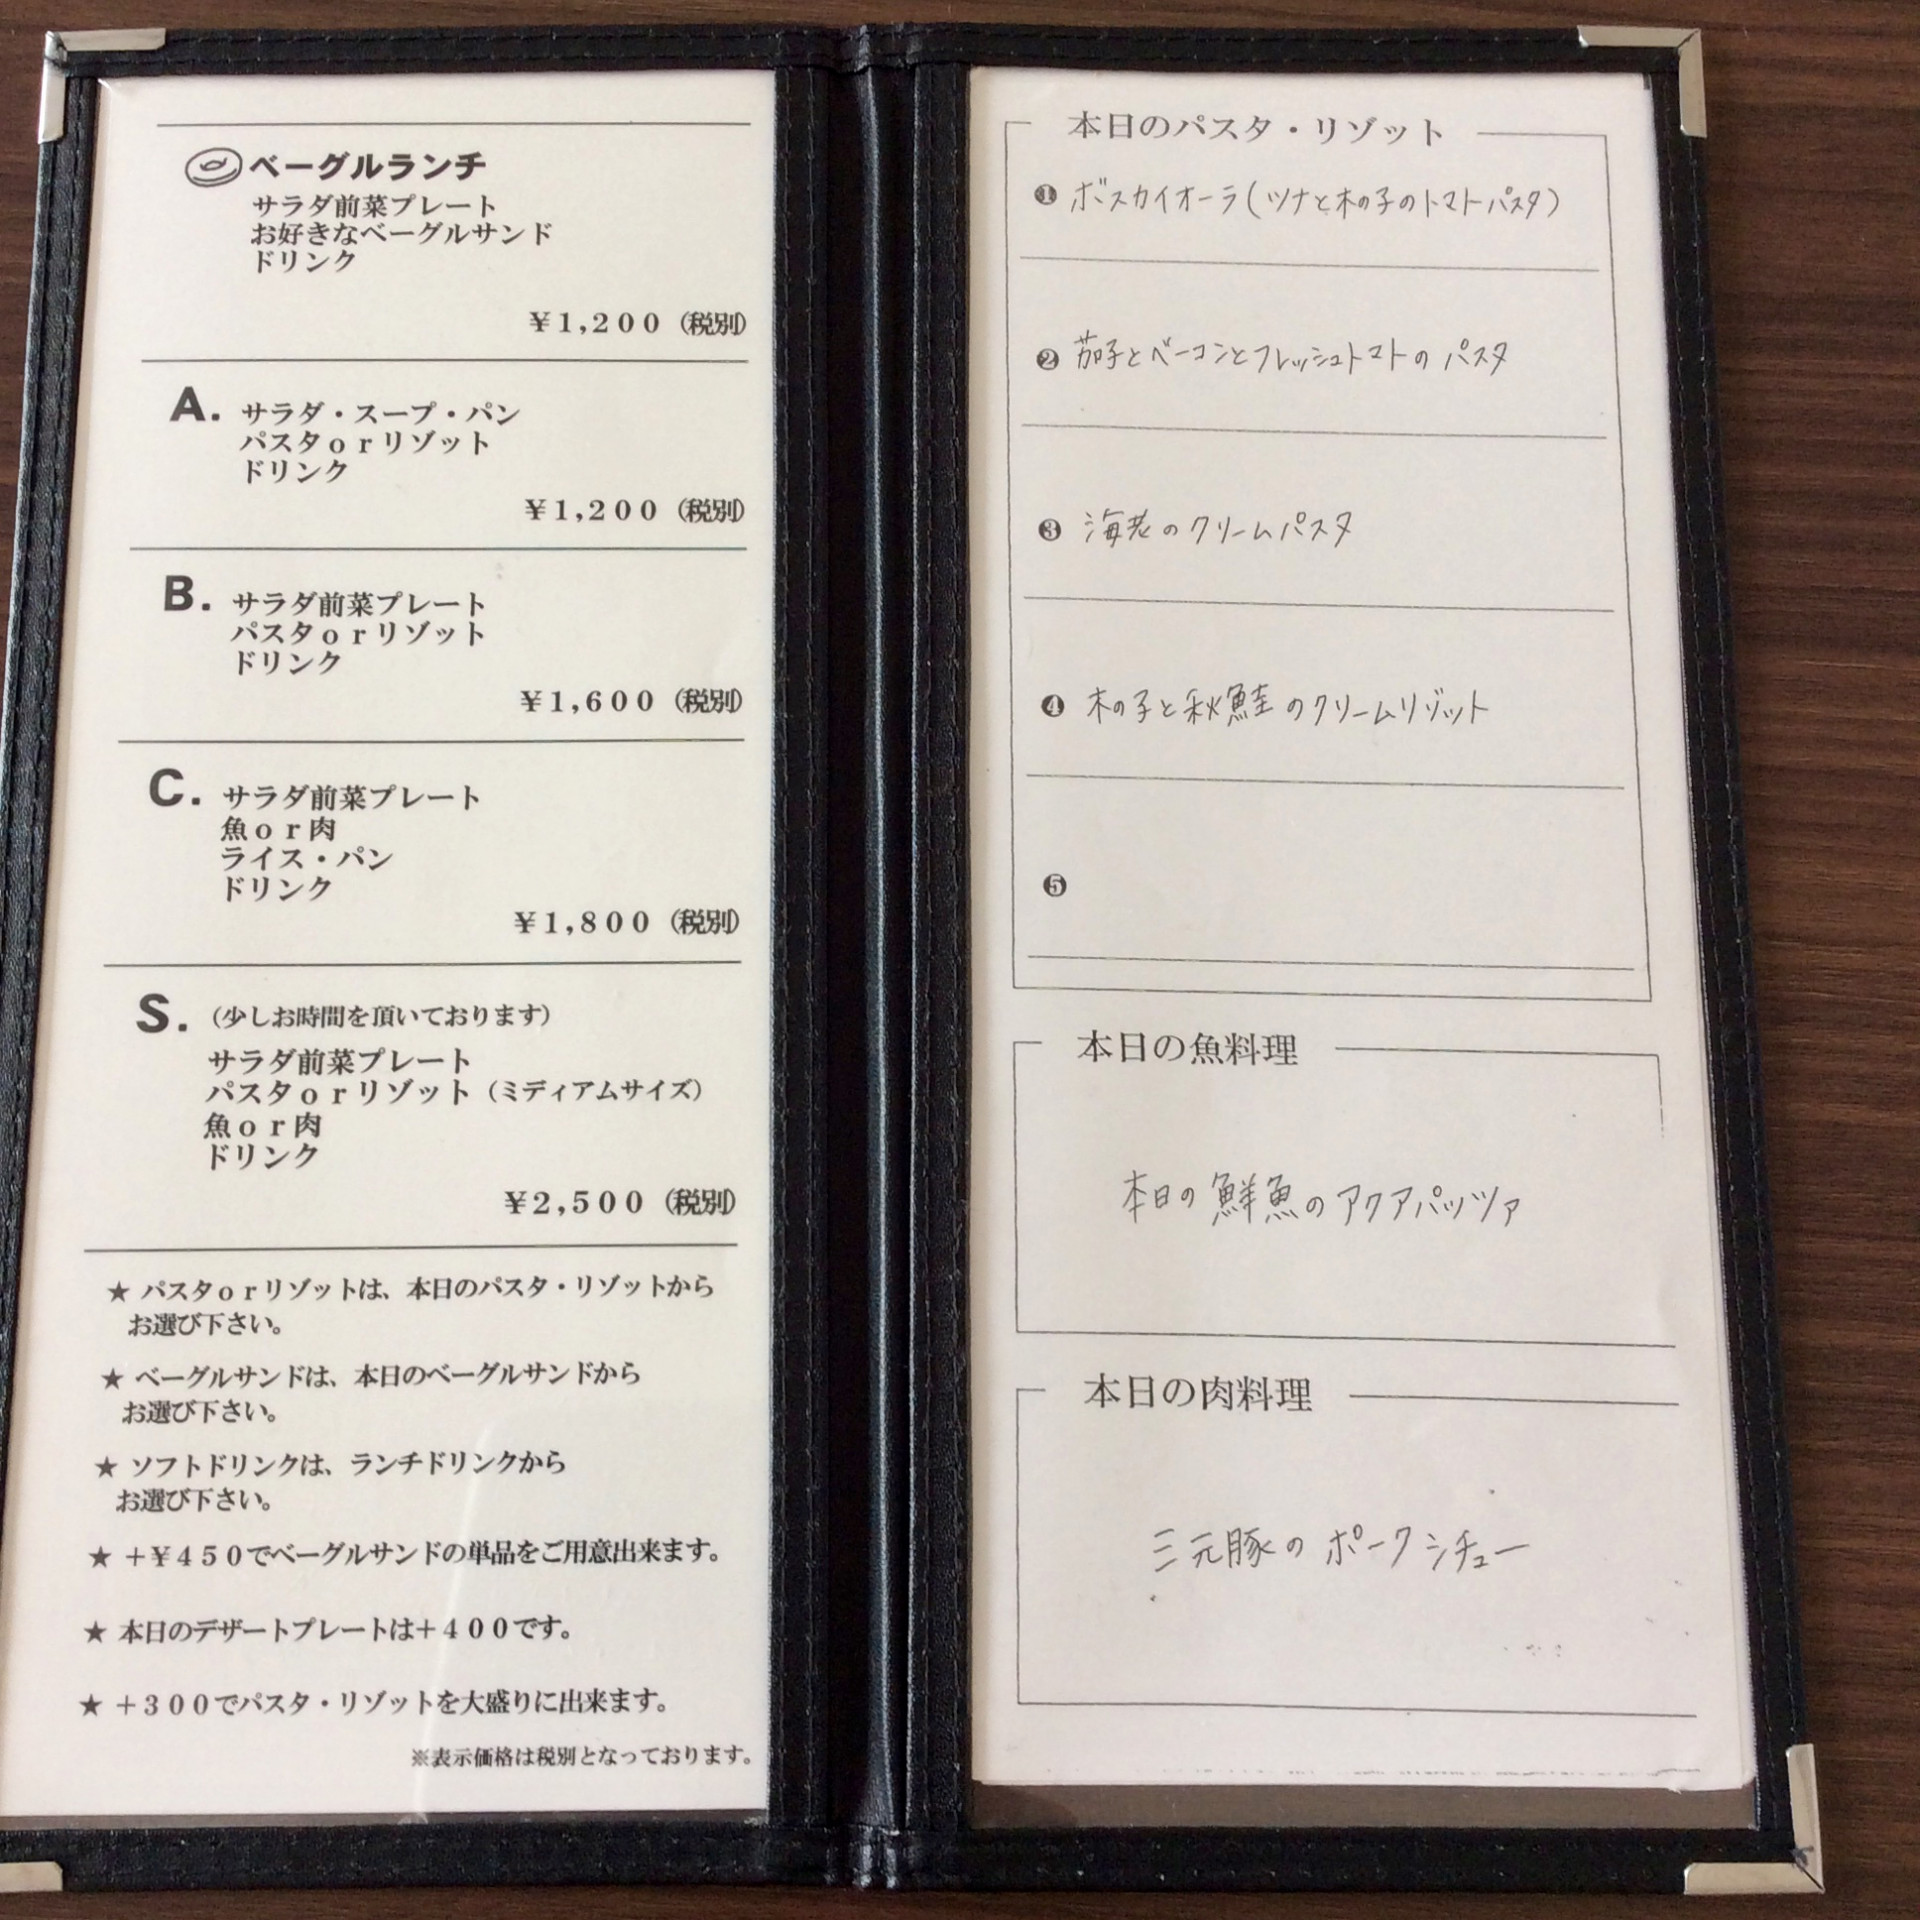 ベーグルランチ
サラダ前菜プレート
お好きなベーグルサンド
ドリンク
¥1,200 (税別)
A. サラダ・スープ・パン
パスタorリゾット
ドリンク
¥1,200 (税別)
B. サラダ前菜プレート
パスタorリゾット
ドリンク
¥1,600 (税別)
C. サラダ前菜プレート
魚or肉
ライス・パン
ドリンク
¥1,800 (税別)
S. (少しお時間を頂いております)
サラダ前菜プレート
パスタorリゾット (ミディアムサイズ)
魚or肉
ドリンク
¥2,500 (税別)
★ パスタorリゾットは、本日のパスタ・リゾットから
お選び下さい。
★ ベーグルサンドは、本日のベーグルサンドから
お選び下さい。
★ ソフトドリンクは、ランチドリンクから
お選び下さい。
★ +¥450でベーグルサンドの単品をご用意出来ます。
★ 本日のデザートプレートは+400です。
★ +300でパスタ・リゾットを大盛りに出来ます。
※表示価格は税別となっております。
本日のパスタ・リゾット
❶ ボスカイオーラ(ツナと木の子のトマトパスタ)
❷ 茄子とベーコンとフレッシュトマトのパスタ
❸ 海老のクリームパスタ
❹ 木の子と秋鮭のクリームリゾット
❺
本日の魚料理
本日の鮮魚のアクアパッツァ
本日の肉料理
三元豚のポークシチュー